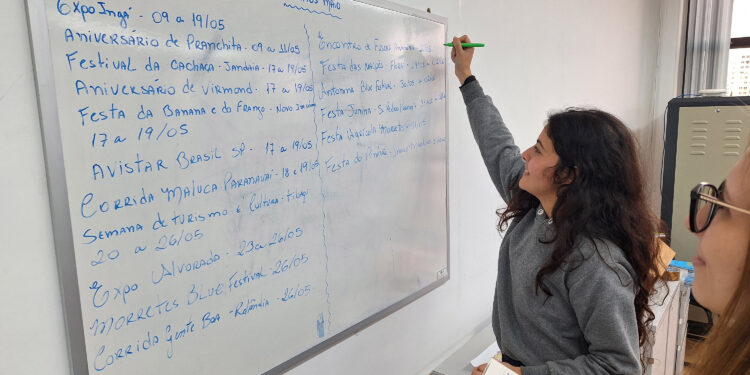 MAIO
ExpoIngá - 09 a 19/05
Aniversário de Pranchita - 09 a 11/05
Festival da Cachaça - Jandaia - 17 a 19/05
Aniversário de Virmond - 17 a 19/05
Festa da Banana e do Frango - Novo
17 a 19/05
Avistar Brasil SP - 17 a 19/05
Corrida Maluca Paranavaí - 18 e 19/05
Semana de Turismo e Cultura - Tibagi
20 a 26/05
Expo Alvorada - 23 a 26/05
Morretes Blue Festival - 26/05
Corrida Gente Boa - Rolândia - 26/05
Encontro de
Festa das
Antonina Blue Festival - 30/05
Festa Junina - S.
Festa Agrícola Morretes
Festa do Pinhão